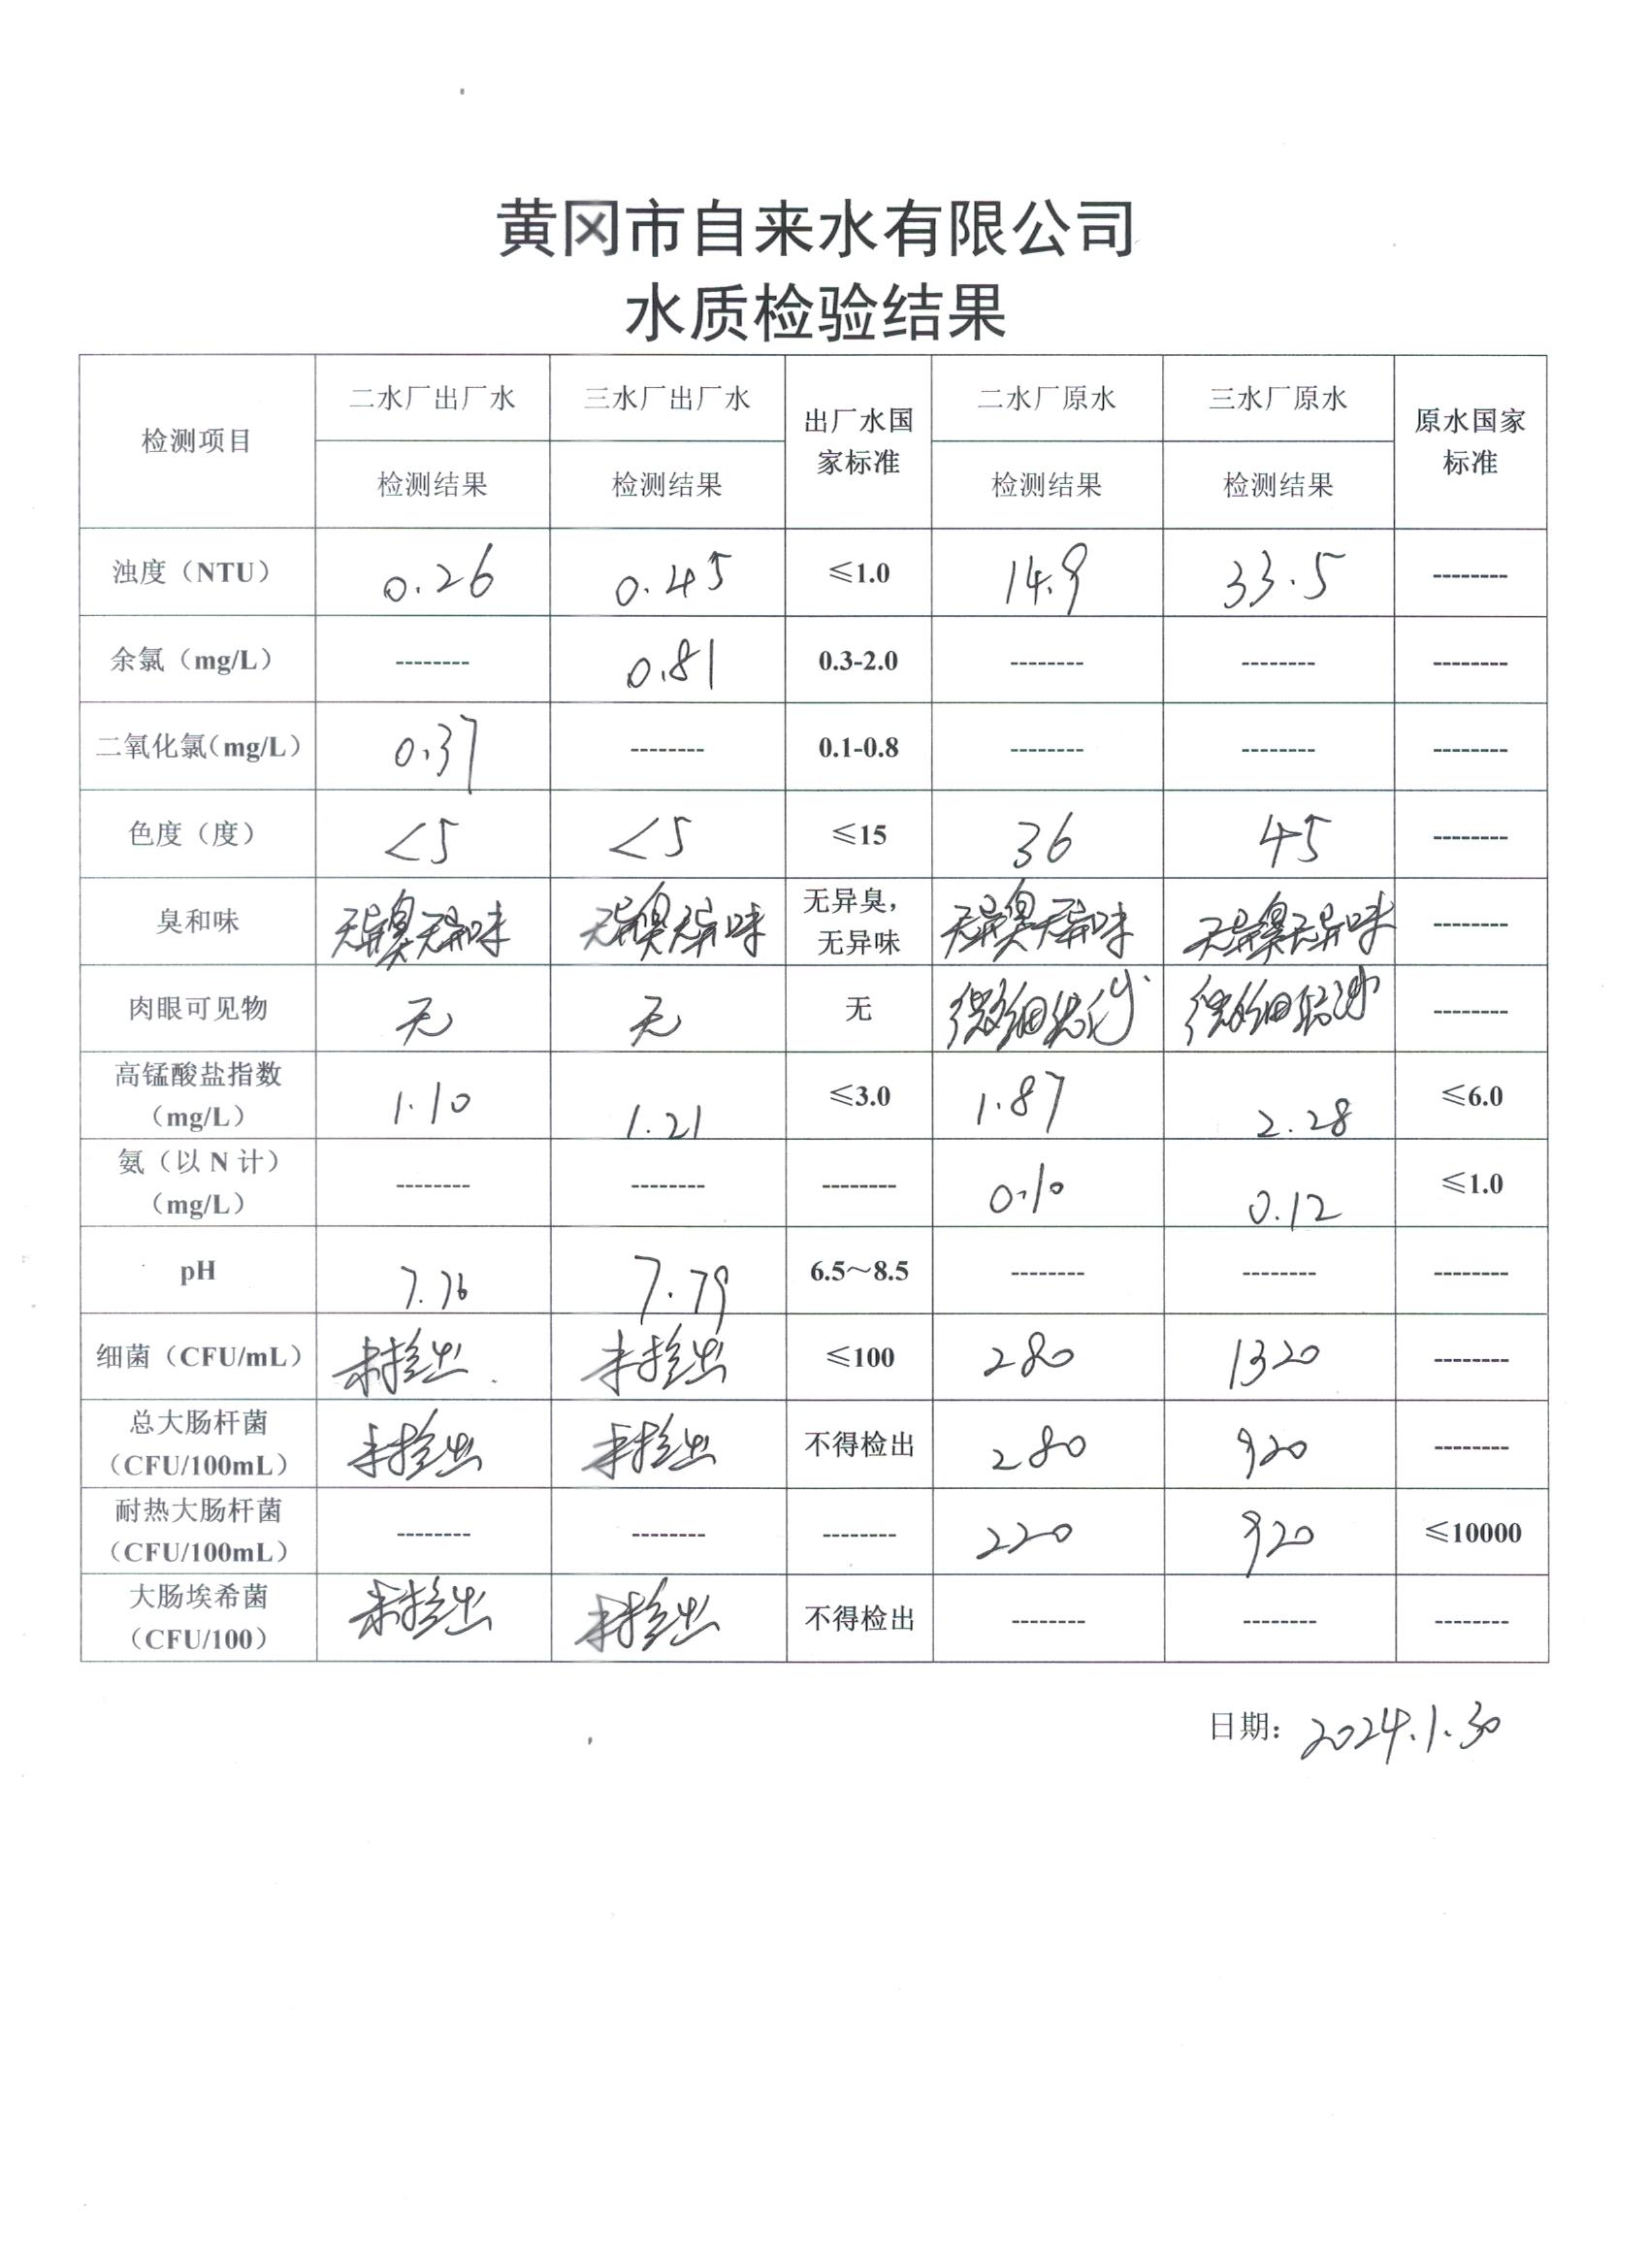 黄冈市自来水有限公司
水质检验结果
检测项目 二水厂出厂水 三水厂出厂水 出厂水国家标准 二水厂原水 三水厂原水 原水国家标准
检测结果 检测结果 检测结果 检测结果
浊度（NTU） 0.26 0.45 ≤1.0 14.9 33.5 --------
余氯（mg/L） -------- 0.81 0.3-2.0 -------- -------- --------
二氧化氯（mg/L） 0.37 -------- 0.1-0.8 -------- -------- --------
色度（度） <5 <5 ≤15 36 45 --------
臭和味 无异臭无异味 无异臭无异味 无异臭，无异味 无异臭无异味 无异臭无异味 --------
肉眼可见物 无 无 无 微细 微细 --------
高锰酸盐指数（mg/L） 1.10 1.21 ≤3.0 1.87 2.28 ≤6.0
氨（以 N 计）（mg/L） -------- -------- -------- 0.10 0.12 ≤1.0
pH 7.76 7.79 6.5～8.5 -------- -------- --------
细菌（CFU/mL） 未检出 未检出 ≤100 280 1320 --------
总大肠杆菌（CFU/100mL） 未检出 未检出 不得检出 280 920 --------
耐热大肠杆菌（CFU/100mL） -------- -------- -------- 220 920 ≤10000
大肠埃希菌（CFU/100） 未检出 未检出 不得检出 -------- -------- --------
日期：2024.1.30